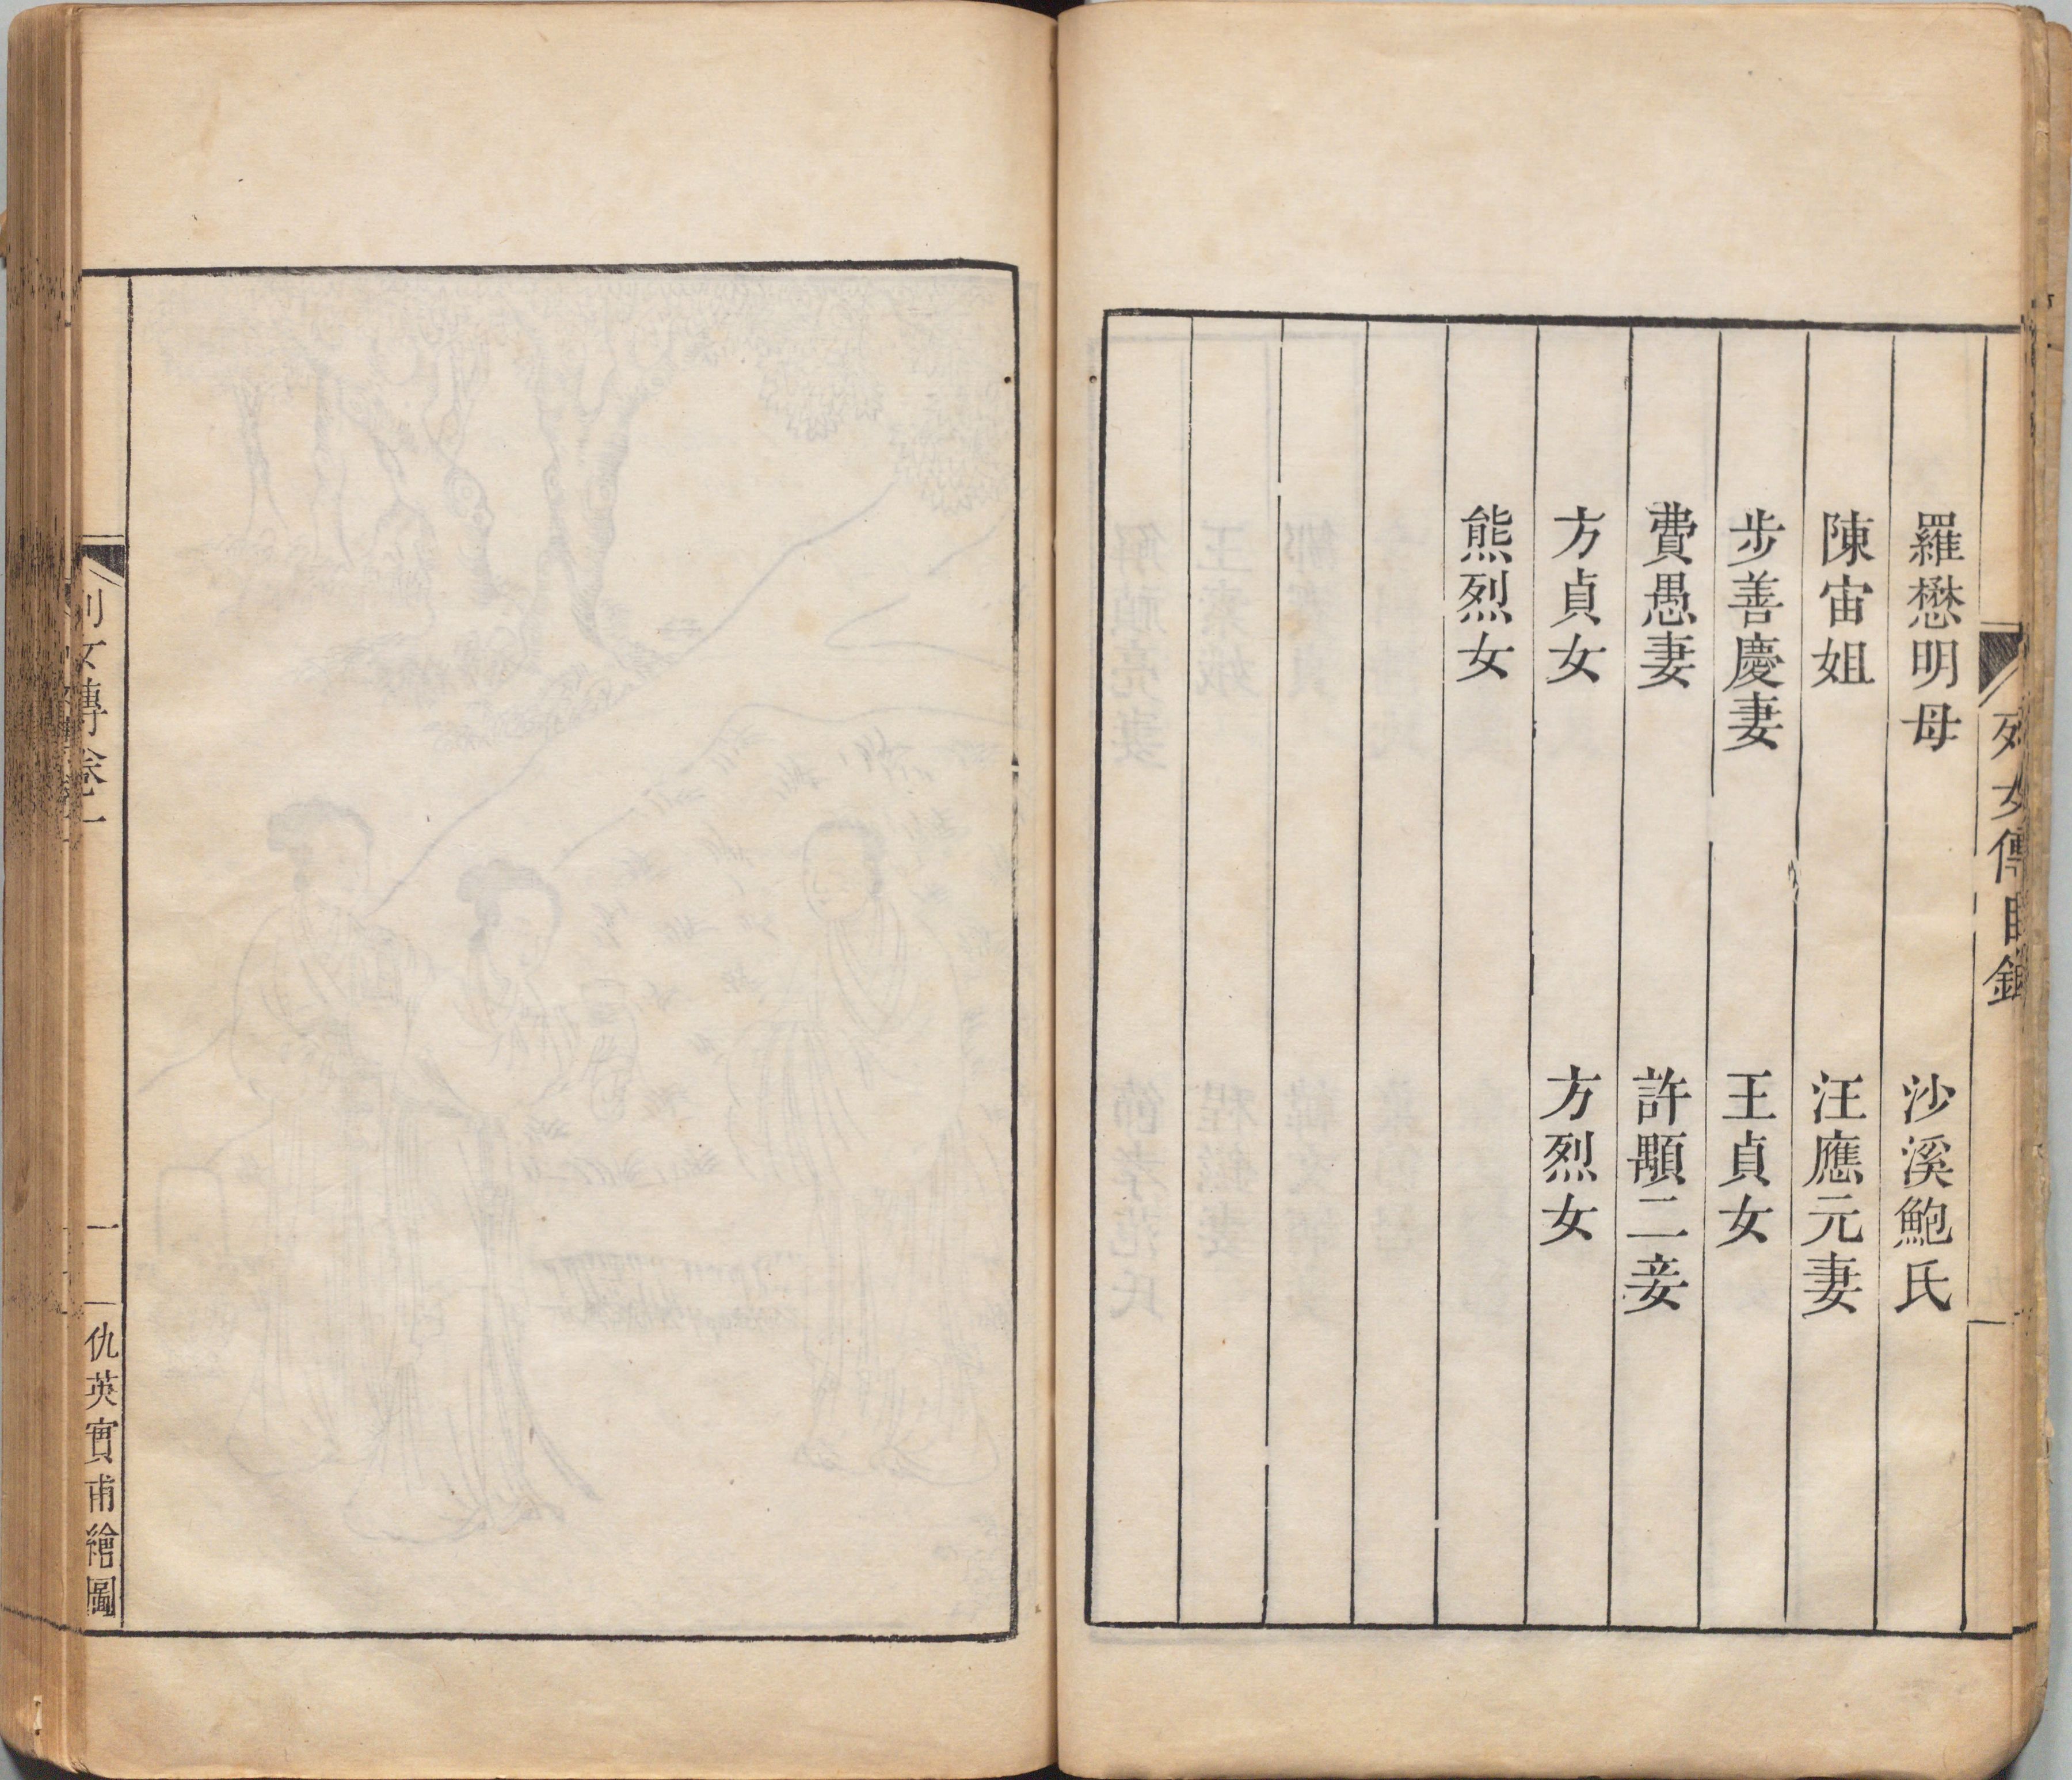 列女傳目錄
羅懋明母
沙溪鮑氏
陳宙姐
汪應元妻
步善慶妻
王貞女
費愚妻
許顒二妾
方貞女
方烈女
熊烈女
列女傳卷一
一
仇英實甫繪圖